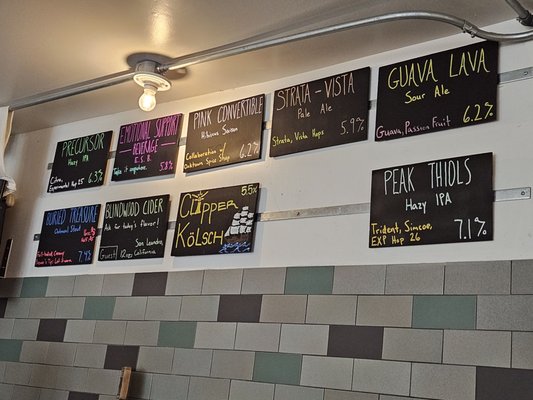 PRECURSOR
Hazy IPA
Citra,
Experimental Hop
6.3%
EMOTIONAL SUPPORT
BEVERAGE
E.S.B.
5.8%
PINK CONVERTIBLE
Hibiscus Saison
Collaboration w/
Oaktown Spice Shop
6.2%
STRATA-VISTA
Pale Ale
Strata, Vista Hops
5.9%
GUAVA LAVA
Sour Ale
Guava, Passion Fruit
6.2%
BURIED TREASURE
Oatmeal Stout
7.4%
BLINDWOOD CIDER
Ask for today's flavor!
San Leandro,
Guest
CA
5.5%
CLIPPER
KÖLSCH
PEAK THIOLS
Hazy IPA
Trident, Simcoe,
EXP Hop 26
7.1%